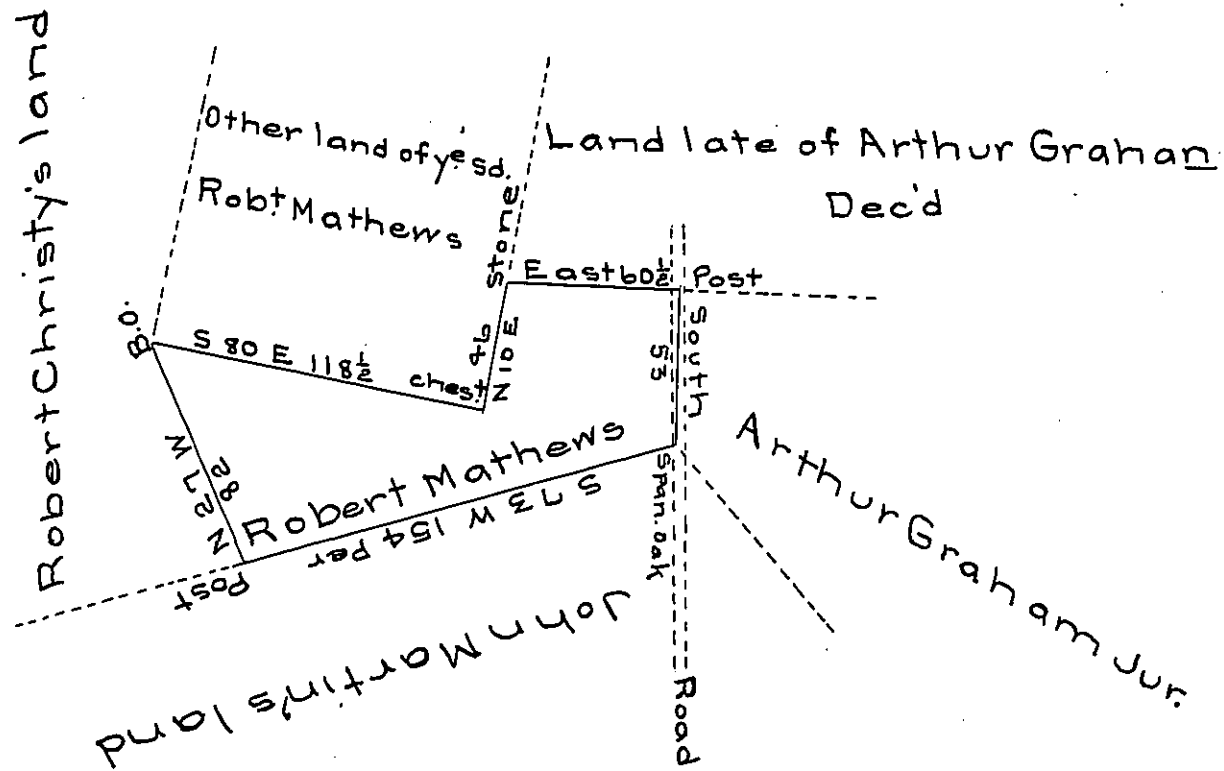 Robert Christy's land
Other land of yᵉ sd.
Robt. Mathews
Land late of Arthur Grahan
Dec'd
Stone
East 60½
Post
B.O.
S 80 E 118½
chest.
N 10 E
46
South
53
N 27 W
82
Robert Mathews
S 73 W 154 Per
Post
Span. Oak
Arthur Graham Jur.
John Martin's land
Road